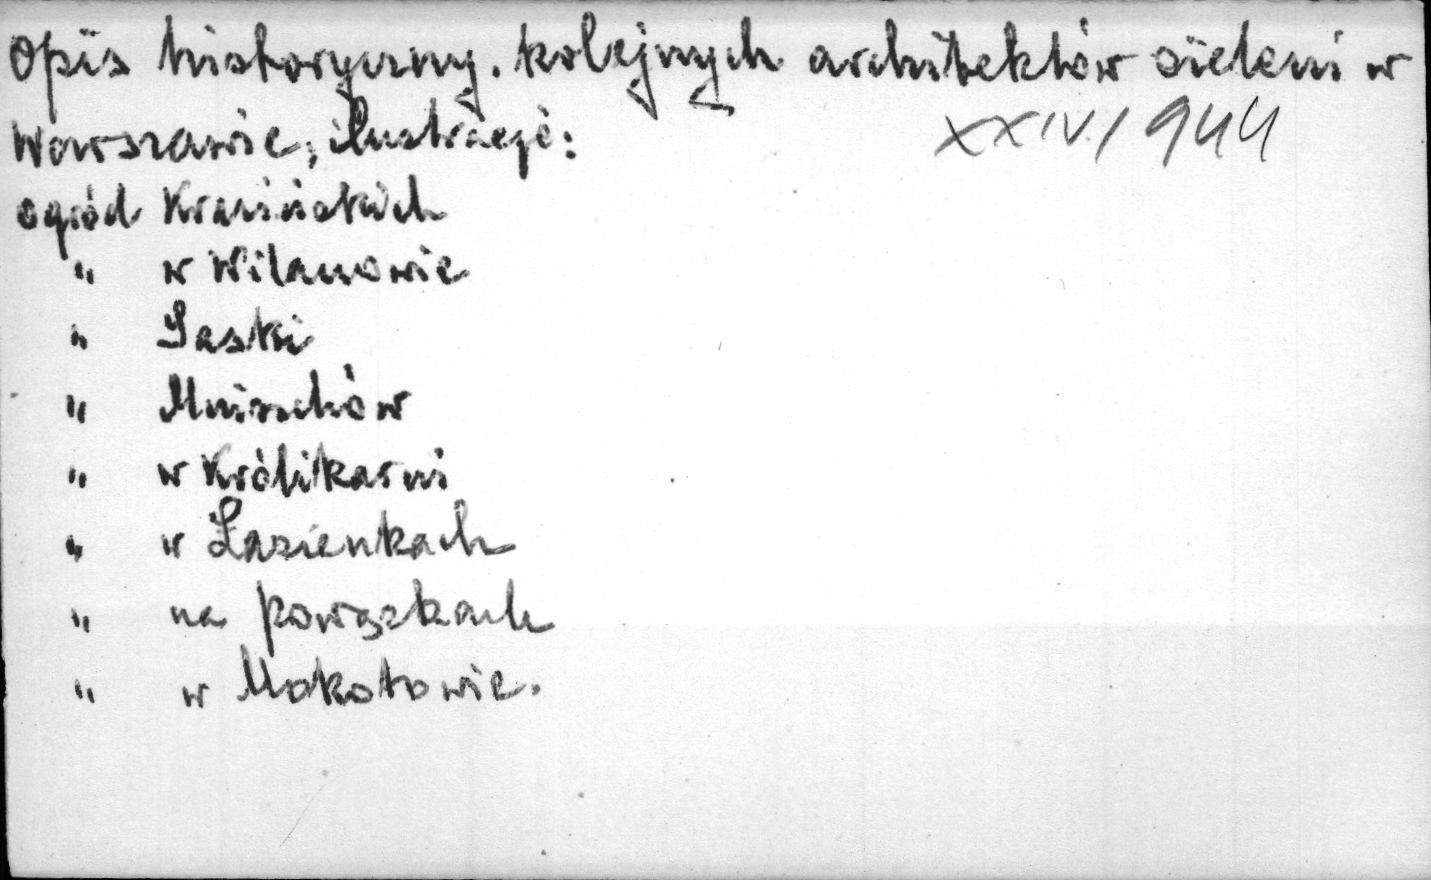 Opis historyczny. kolejnych architektów zieleni w
Warszawie, ilustracje:
XXIV/944
ogród Krasińskich
" w Wilanowie
" Saski
" Mniszchów
" w Królikarni
" w Łazienkach
" na Powązkach
" w Mokotowie.